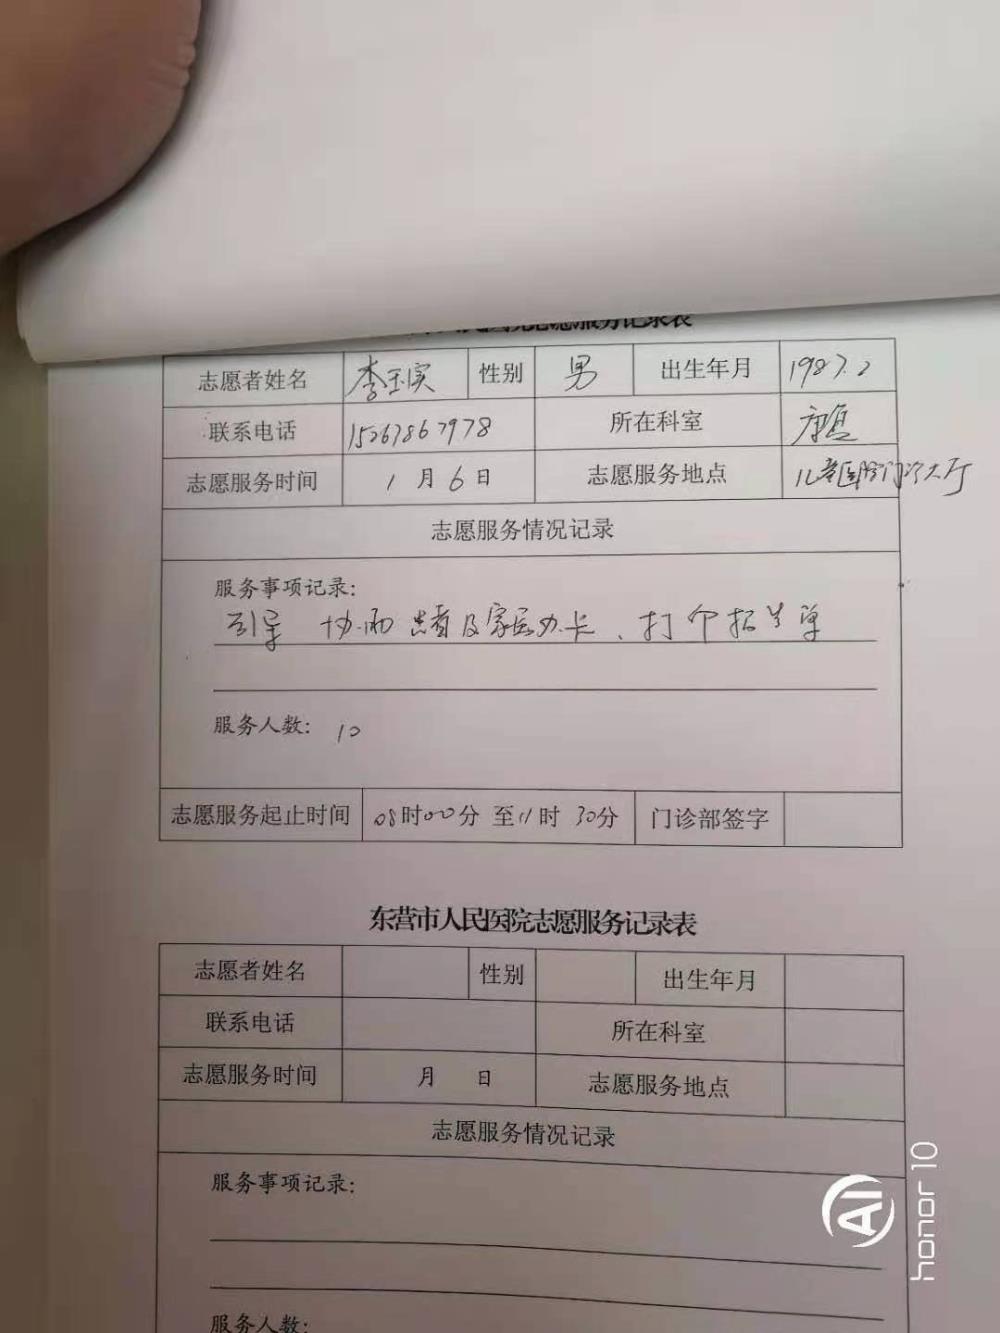 民医院志愿服务记录表
志愿者姓名 李玉宾 性别 男 出生年月 1987.2
联系电话 15267867978 所在科室 康复
志愿服务时间 1月6日 志愿服务地点 儿童医院门诊大厅
志愿服务情况记录
服务事项记录:
引导 协助患者及家属办卡、打个报告单
服务人数: 10
志愿服务起止时间 08时00分 至11时 30分 门诊部签字
东营市人民医院志愿服务记录表
志愿者姓名 性别 出生年月
联系电话 所在科室
志愿服务时间 月 日 志愿服务地点
志愿服务情况记录
服务事项记录:
服务人数:
AI honor 10